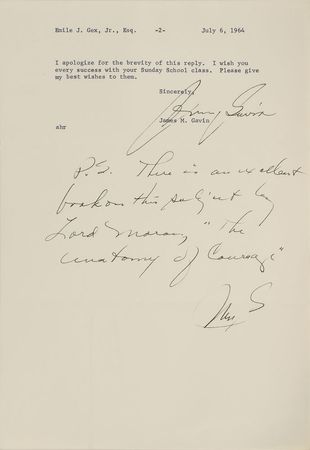 Emile J. Gex, Jr., Esq. -2- July 6, 1964
I apologize for the brevity of this reply. I wish you
every success with your Sunday School class. Please give
my best wishes to them.
Sincerely,
James M. Gavin
ahr
P.S. There is an excellent
book on this subject by
Lord Moran, "The
Anatomy of Courage"